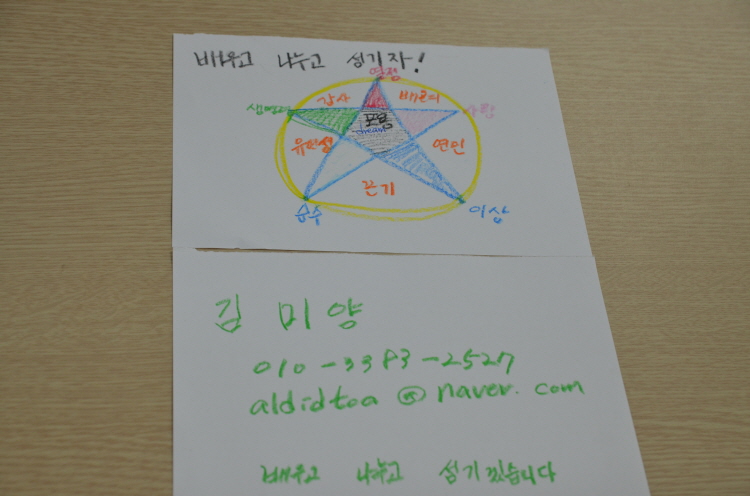 배우고 나누고 섬기자!
열정
감사 배려
생명력 사랑
포용
dream
유연성 연인
끈기
순수 이상
김미양
010-3383-2527
aldidtoa@naver.com
배우고 나누고 섬기겠습니다